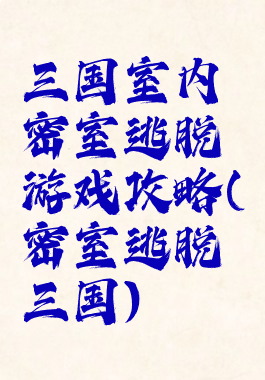 三国室内
密室逃脱
游戏攻略(
密室逃脱
三国)